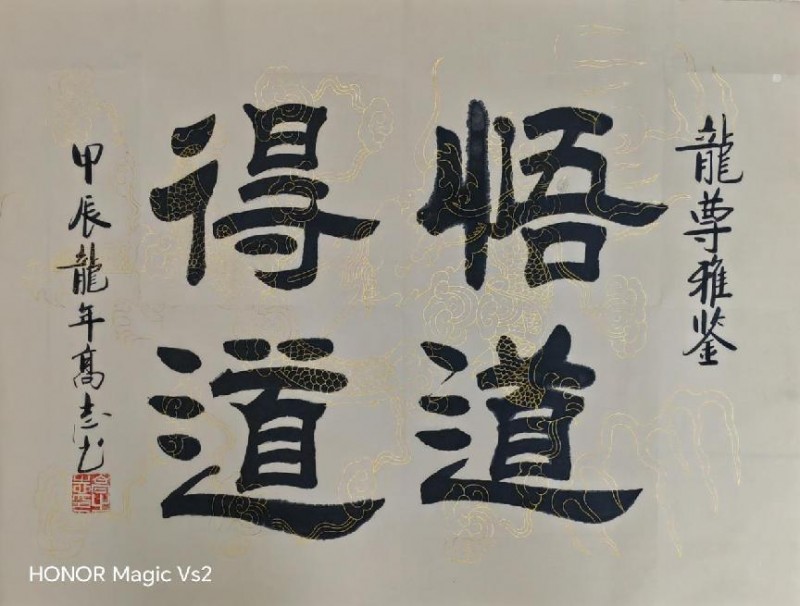 龍尊雅鉴
悟道
得道
甲辰龍年高志书
HONOR Magic Vs2